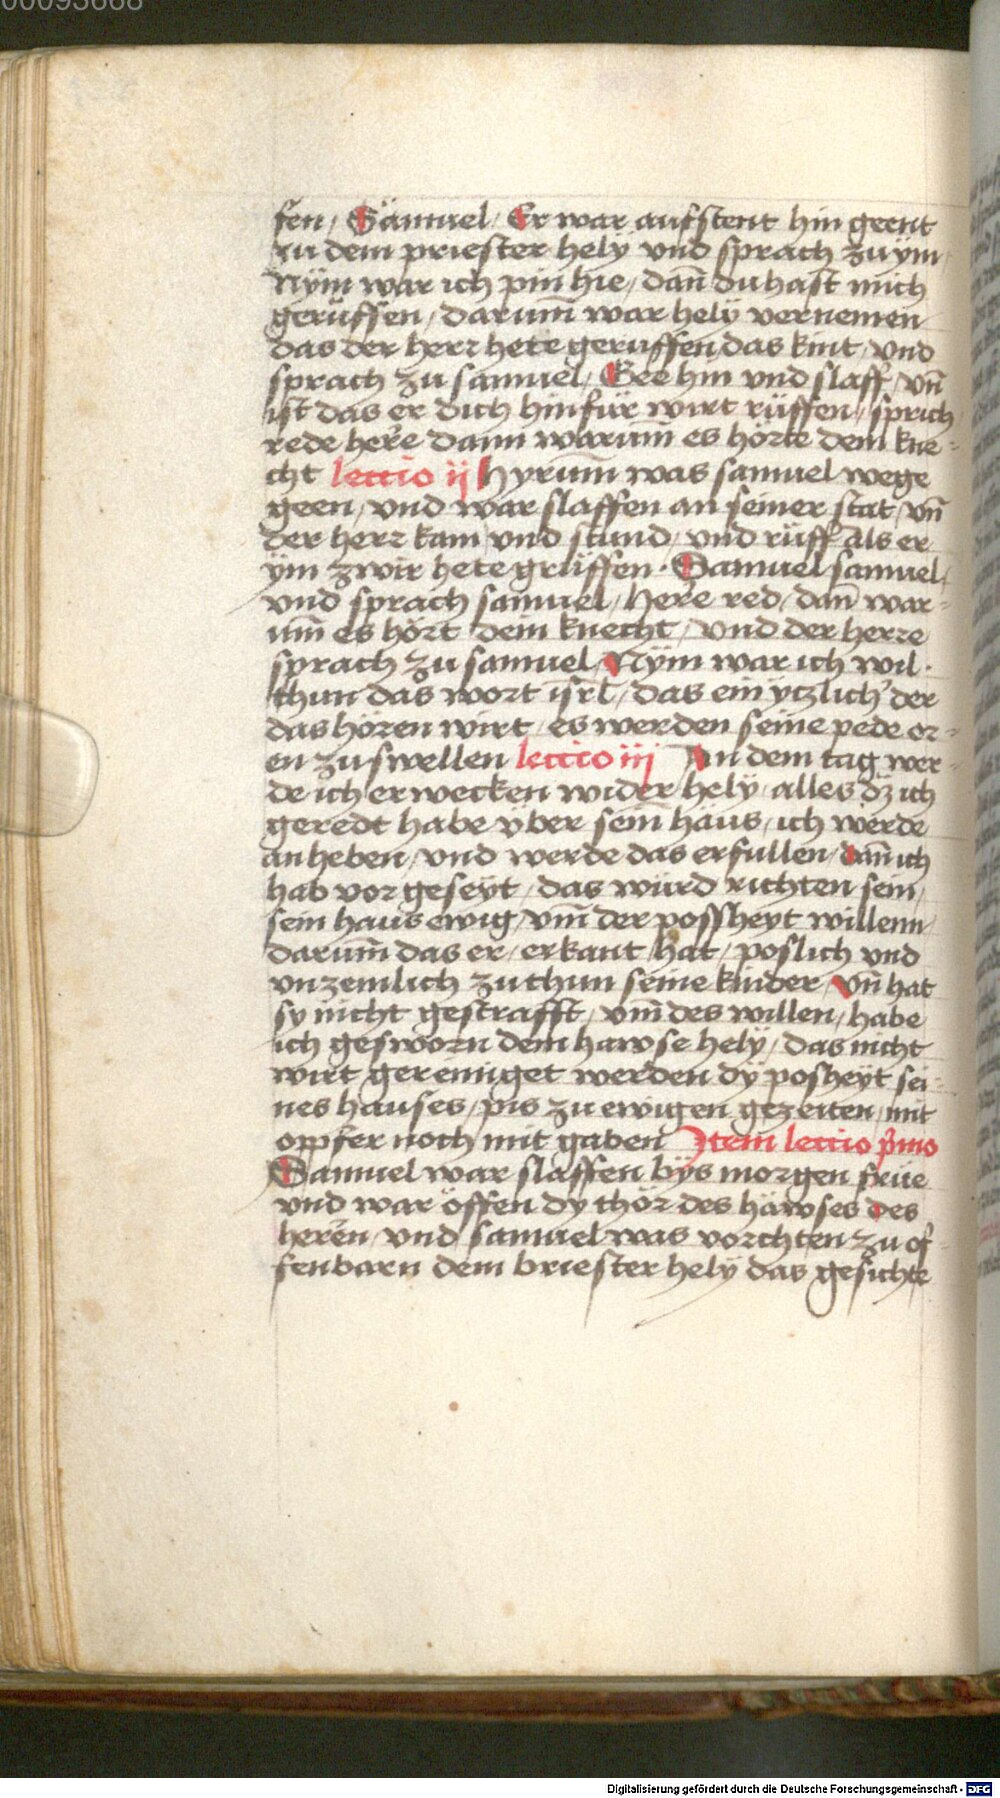 00093668
fen / Sämuel / Er war aufstent hin geent
zu dem priester helÿ vnd sprach zu ÿm
Nÿm war ich pin hie / dan̄ du hast mich
gerüffen / darum̄ war helÿ vernemen
das der herr hete geruffen das kint / vnd
sprach zu samuel / Gee hin vnd slaff / vn̄
ist das er dich hinfür wirt rüffen / sprich
rede here dann warum̄ es hörte dem kne-
cht lectio ij Hyrum̄ was samuel wege
geen / vnd war slaffen an seiner stat / vn̄
der herr kam vnd stund / vnd rüff als er
ÿm zwir hete grüffen · Samuel samuel /
vnd sprach samuel / here red / dan̄ war-
um̄ es hört dein knecht / vnd der herre
sprach zu samuel Nÿm war ich wil ·
thun das wort iſrl / das ein ÿtzlich' der
das hören wirt / es werden seine pede or-
en zu swellen lectio iij An dem tag wer-
de ich erwecken wider helÿ / alles dz ich
geredt habe über sein häus / ich werde
an heben / vnd werde das erfullen / dan̄ ich
hab vor geseÿt / das würd richten sein /
sein haus ewig / vm̄ der possheyt willenn /
darum̄ das er / erkant hat / poslich vnd
vnzemlich zu thun seine kinder / vn̄ hat
sy nicht gestrafft / vm̄ des willen / habe
ich gesworn dem hawse helÿ / das nicht
wirt gereiniget werden dÿ posheÿt sei-
nes hauses / pis zu ewigen gezeiten / mit
opfer noch mit gaben Item lectio p̄mo
Samuel war slaffen bÿs morgen früe
vnd war öffen dy thör des häwses des
heren / vnd samuel was vorchten zu of-
fenbarn dem briester helÿ das gesichte
Digitalisierung gefördert durch die Deutsche Forschungsgemeinschaft - DFG